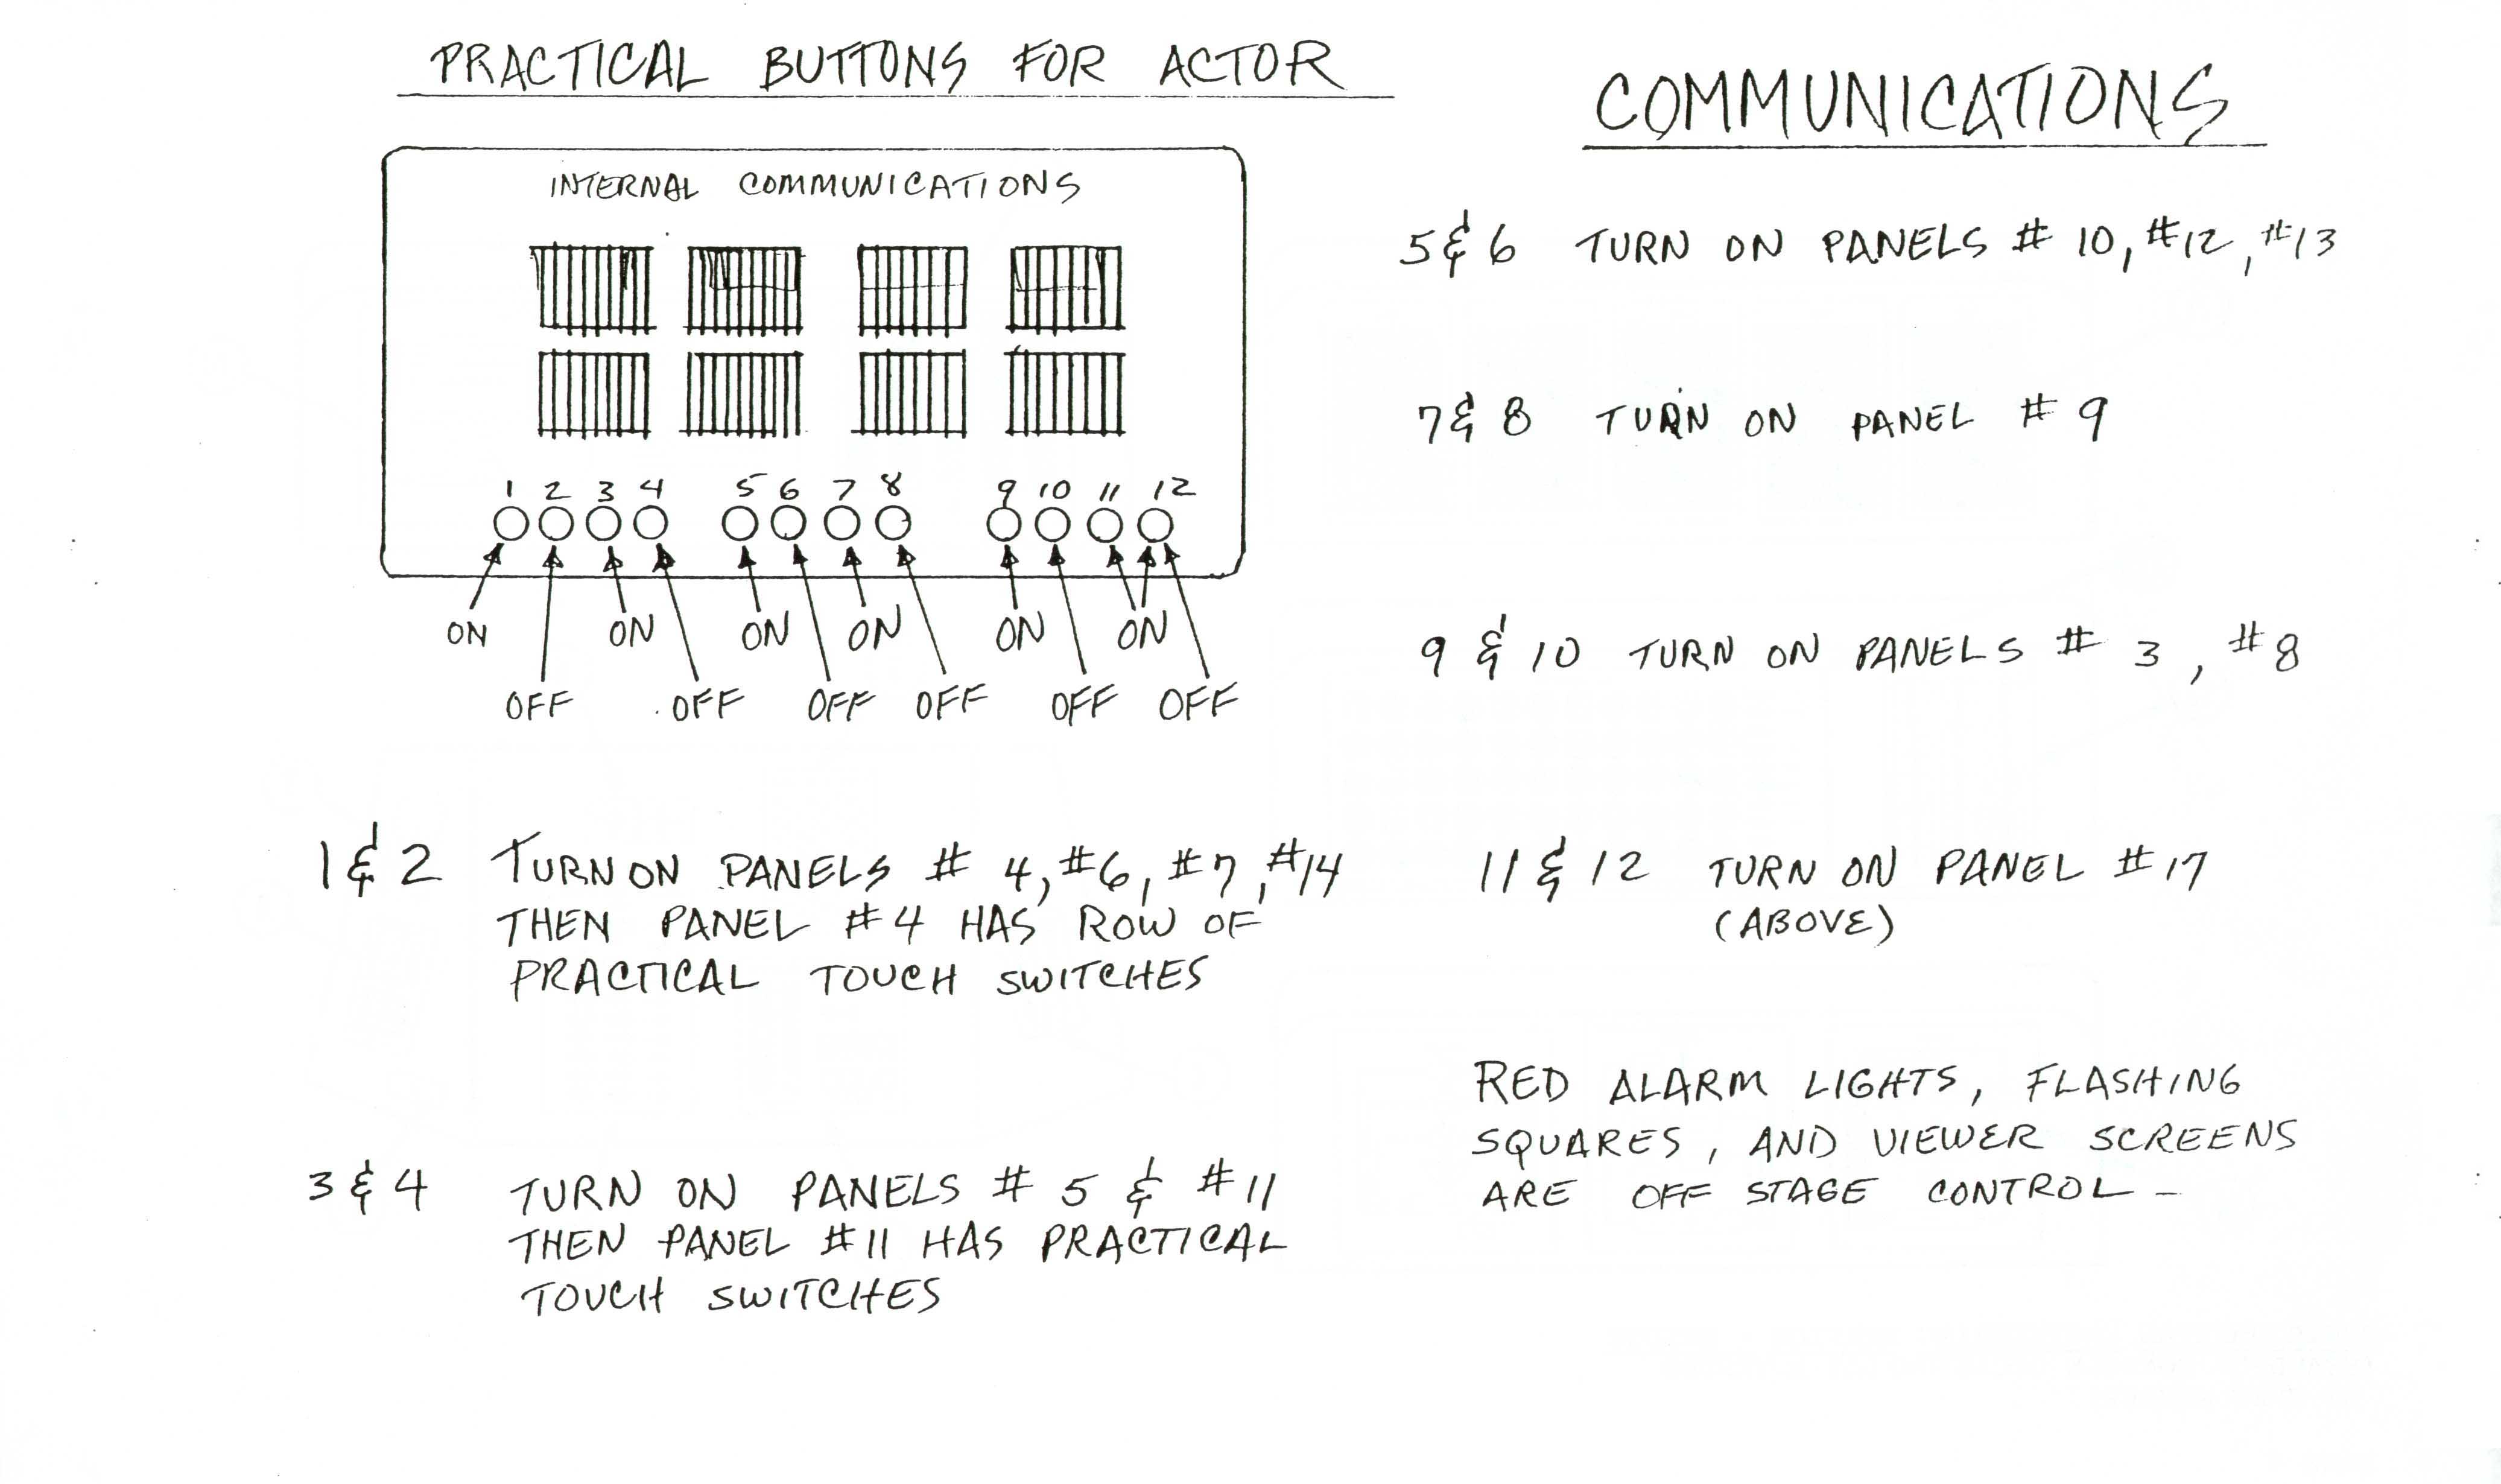 PRACTICAL BUTTONS FOR ACTOR
INTERNAL COMMUNICATIONS
1 2 3 4 5 6 7 8 9 10 11 12
ON ON ON ON ON ON
OFF OFF OFF OFF OFF OFF
1 & 2 TURN ON PANELS # 4, #6, #7, #14
THEN PANEL #4 HAS ROW OF
PRACTICAL TOUCH SWITCHES
3 & 4 TURN ON PANELS # 5 & #11
THEN PANEL #11 HAS PRACTICAL
TOUCH SWITCHES
COMMUNICATIONS
5 & 6 TURN ON PANELS # 10, #12, #13
7 & 8 TURN ON PANEL # 9
9 & 10 TURN ON PANELS # 3, #8
11 & 12 TURN ON PANEL #17
(ABOVE)
RED ALARM LIGHTS, FLASHING
SQUARES, AND VIEWER SCREENS
ARE OFF STAGE CONTROL -